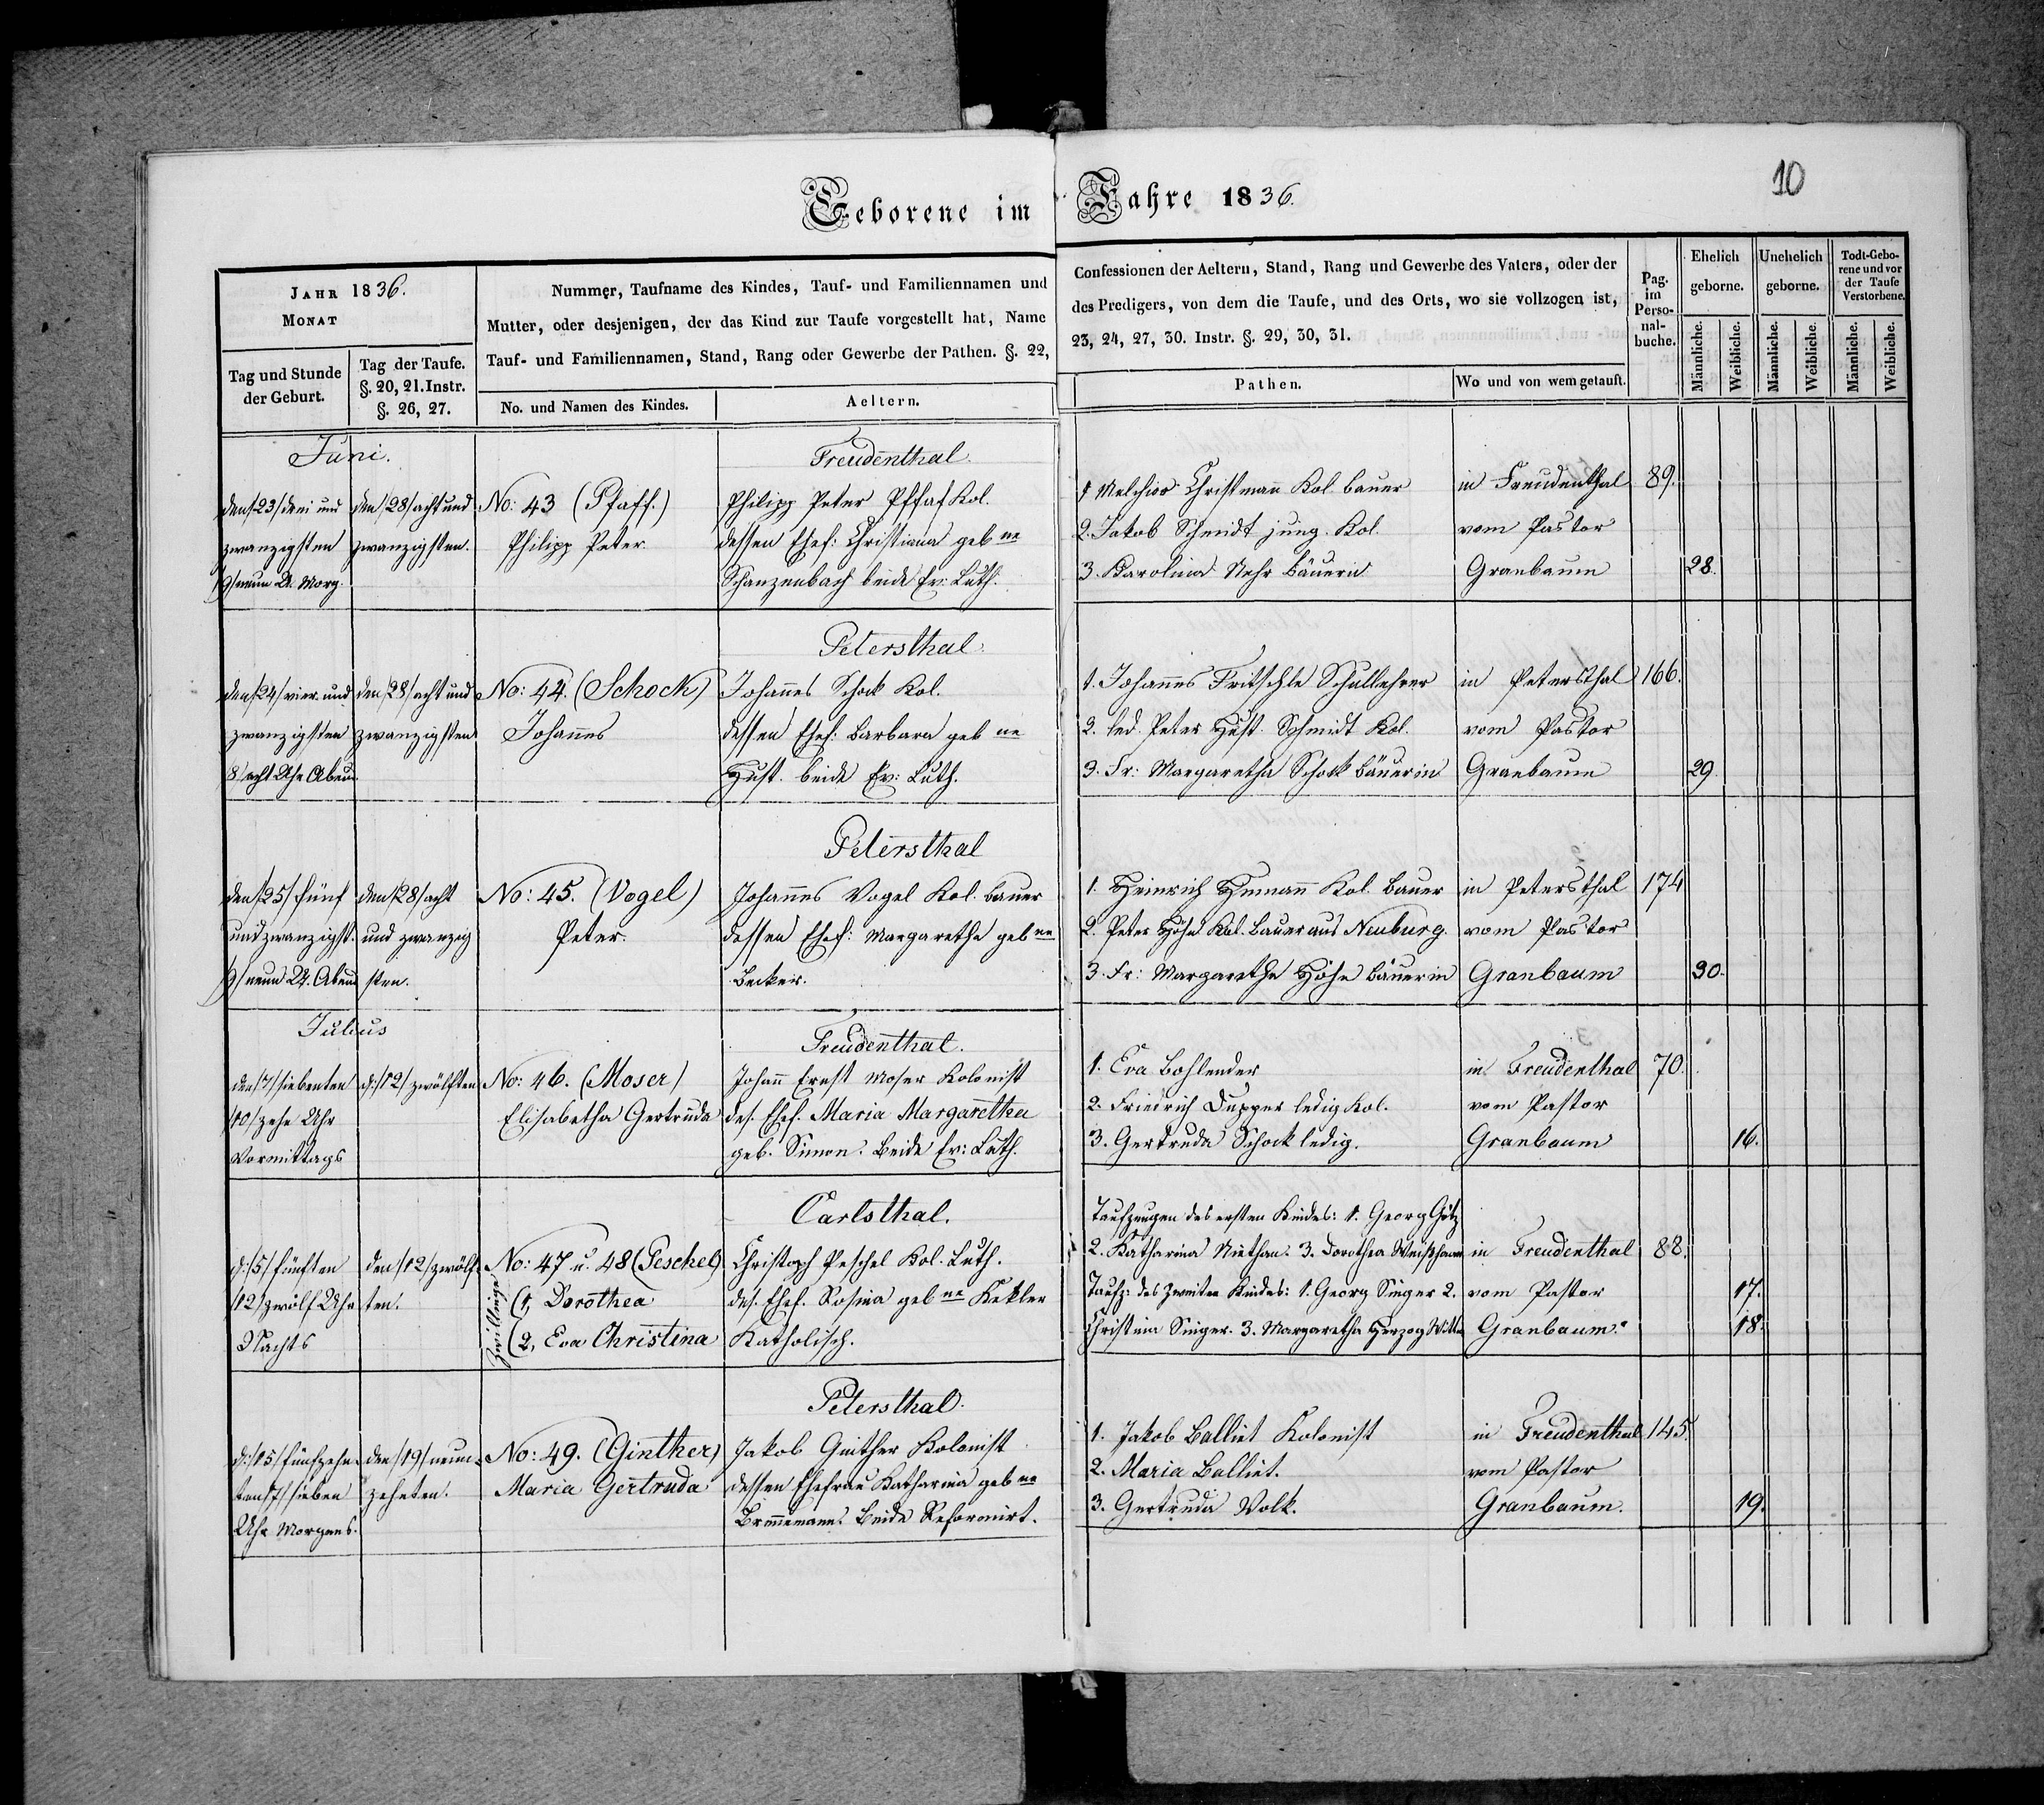 10
Geborene im Jahre 1836.
Jahr 1836.
Monat
Tag und Stunde der Geburt.
Tag der Taufe. §. 20, 21. Instr. §. 26, 27.
Nummer, Taufname des Kindes, Tauf- und Familiennamen und
Mutter, oder desjenigen, der das Kind zur Taufe vorgestellt hat, Name
Tauf- und Familiennamen, Stand, Rang oder Gewerbe der Pathen. §. 22,
No. und Namen des Kindes.
Aeltern.
Confessionen der Aeltern, Stand, Rang und Gewerbe des Vaters, oder der
des Predigers, von dem die Taufe, und des Orts, wo sie vollzogen ist,
23, 24, 27, 30. Instr. §. 29, 30, 31.
Pathen.
Wo und von wem getauft.
Pag. im Perso-nal-buche.
Ehelich geborne.
Unehelich geborne.
Todt-Gebo-rene und vor der Taufe Verstorbene.
Männliche.
Weibliche.
Männliche.
Weibliche.
Männliche.
Weibliche.
Juni.
Freudenthal.
den /23/ drei und
zwanzigsten
/9/ neun U. Morg.
den /28/ acht und
zwanzigsten.
No: 43 (Pfaff.)
Philipp Peter.
Philipp Peter Pffaf Kol.
dessen Ehef: Christiana geb ne
Schanzenbach beide Ev: Luth.
1 Melchior Christmann Kol. bauer
2. Jakob Schmidt jung. Kol.
3. Karolina Nehr bäuerin
in Freudenthal
vom Pastor
Granbaum
89.
28.
Petersthal.
den /24/ vier und
zwanzigsten
8/ acht Uhr Abend
den /28/ acht und
zwanzigsten
No: 44. (Schock)
Johannes
Johannes Schock Kol.
dessen Ehef: Barbara geb ne
Hust. beide Ev: Luth.
1. Johannes Fritschle Schullehrer
2. led. Peter Hust. Schmidt Kol.
3. Fr: Margaretha Schock bäuerin
in Petersthal
vom Pastor
Granbaum
166.
29.
Petersthal
den /25/ fünf
und zwanzigst.
/9/ neun U. Abend
den /28/ acht
und zwanzig
sten.
No: 45. (Vogel)
Peter.
Johannes Vogel Kol. bauer
dessen Ehef: Margaretha geb ne
Becker.
1. Heinrich Kol. Bauer
2. Peter Höhn Kol. Bauer aus Neuburg.
3. Fr: Margaretha Höhn bäuerin
in Petersthal
vom Pastor
Granbaum
174
30.
Julius
Freudenthal.
den /7/ siebenten
/10/ zehn Uhr
Vormittags
d: /12/ zwölften
No: 46. (Moser)
Elisabetha Gertruda
Johann Ernst Moser Kolonist
des. Ehef. Maria Margaretha
geb. Simon. Beide Ev: Luth.
1. Eva Bohlender
2. Friedrich Dupper ledig Kol.
3. Gertruda Schock ledig.
in Freudenthal
vom Pastor
Granbaum
70.
16.
Carlsthal.
d: /5/ fünften
/12/ zwölf Uhr
Nachts
den /12/ zwölf-
ten.
No: 47 u. 48 (Peschel)
Zwillinge
(1, Dorothea
(2, Eva Christina
Christoph Peschel Kol. Luth.
des. Ehef. Rosina geb ne Kekler
Katholisch.
Taufzeugen des ersten Kindes: 1. Georg Götz
2. Katharina Niethan. 3. Dorothea
Taufz: des zweiten Kindes: 1. Georg Singer 2.
Christina Singer. 3. Margaretha Herzog Witt.
in Freudenthal
vom Pastor
Granbaum.
88.
17.
18.
Petersthal.
d: /15/ fünfzehn-
ten /7/ sieben
Uhr Morgens.
den /19/ neun-
zehnten.
No: 49. (Ginther)
Maria Gertruda
Jakob Ginther Kolonist
dessen Ehefrau Katharina geb ne
Beide Reformirt.
1. Jakob Balliet Kolonist
2. Maria Balliet.
3. Gertruda Volk.
in Freudenthal
vom Pastor
Granbaum.
145.
19.